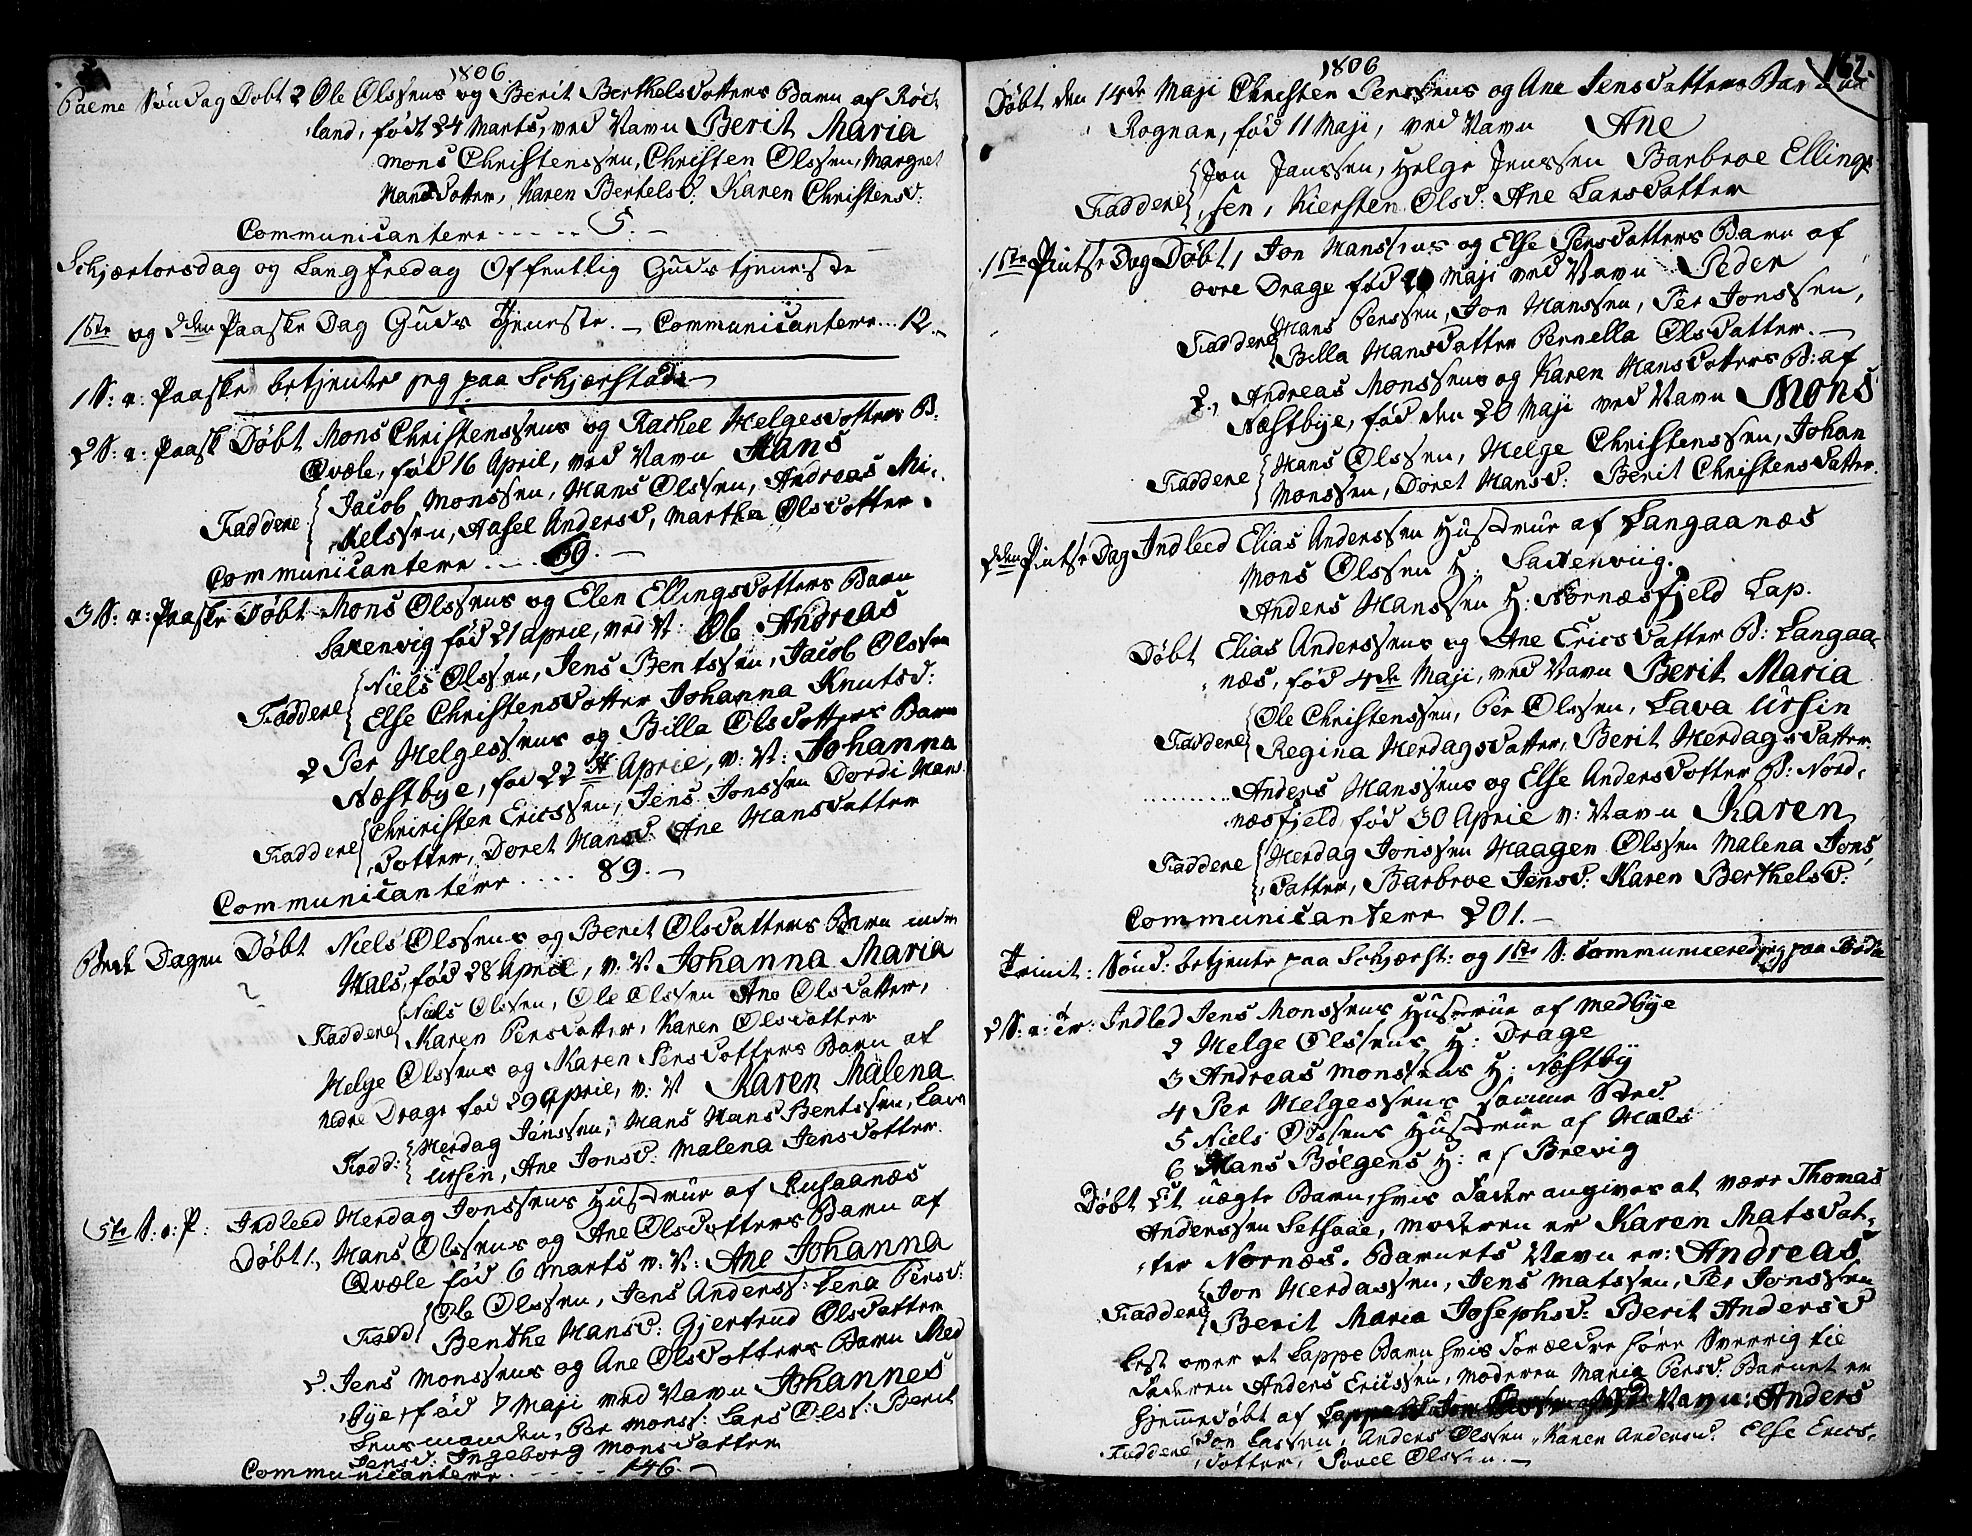 1806
Palme Søndag Døbt 2 Ole Olssens og Berit Berthelsdatters Barn af
land, født 24 Marts, ved Navn Berit Maria
Mons Christenssen, Christen Olssen, Margret
Hansdatter, Karen Bertelsd: Karen Christensd:
Communicantere - - - - - 5. -
Schjærtorsdag og Langfredag Offentlig Guds tjeneste
1ste og 2den Paaske Dag Guds Tjeneste. - Communicantere... 12. -
1 S: e: Paaske betjente jeg paa Schjærstad -
2 S: e: Paask Døbt Mons Christenssens og Rachel Helgesdatters B:
Qvæle, fød 16 April, ved Navn Hans
Faddere Jacob Monssen, Hans Olssen, Andreas Mi-
kelssen, Aasel Andersd, Martha Olsdatter.
Communicantere - - - -
3 S: e: Paaske Døbt Mons Olssens og Elen Ellingsdatters Barn
Saxenvig fød 21 April, ved N: Ole Andreas
Niels Olssen, Jens Bentssen, Jacob Olssen
Faddere Else Christensdatter Johanna Knutsd:
2 Per Helgessens og Billa Olsdatters Barn
Næstbye, fød 22 April, v: N: Johanna
Chriristen Ericssen, Jens Jonssen Dordi Hans
Faddere datter, Doret Hansd: Ane Hansdatter
Communicantere - - - - 89. -
Bede Dagen Døbt Niels Olssens og Berit Olsdatters Barn
Hals, fød 28 April, v. N. Johanna Maria
Niels Olssen, Ole Olssen Ane Olsdatter,
Faddere Karen Persdatter, Karen Olsdatter
Helge Olssens og Karen Persdatters Barn af
nedre Drage fød 29 April, v: N Karen Malena
Fadd: Merdag Jenssen, Hans Hans Bentssen, Lava
Ursin, Ane Jonsd: Malena Jensdatter.
5te S: e: P: Indleed Merdag Jonssens Hustrue af Rusaanæs
Døbt 1, Hans Olssens og Ane Olsdatters Barn af
Qvæle fød 6 Marts v: N: Ane Johanna
Ole Olssen, Jens Anderss: Lena Persd:
Fadd Benthe Hansd: Gjertrud Olsdatter
2. Jens Monssens og Ane Olsdatters Barn Med
bye, fød 7 Maji ved Navn Johannes
Lensmanden, Per Monss: Lars Olss: Berit
Jensd: Ingeborg Monsdatter
Communicantere - - - - - 146. -
1806
162.
Døbt den 14de Maji Christen Perssens og Ane Jensdatters Bar
Rognan, fød 11 Maji, ved Navn Ane
Jon Janssen, Helge Jenssen Barbroe Ellings
Faddere sen, Kiersten Olsd: Ane Larsdatter
1ste Pintse Dag Døbt 1 Jon Hanssens og Else Persdatters Barn af
øvre Drage fød Maji ved Navn Peder
Hans Perssen, Jon Hanssen, Per Jonssen,
Faddere Billa Hansdatter Pernella Olsdatter. -
2, Andreas Monssens og Karen Hansdatters B: af
Næstbye, fød den 20 Maji ved Navn Mons
Hans Olssen, Helge Christenssen, Johan
Faddere Monssen, Doret Hansd: Berit Christensdatter.
2den Pintse Dag Indleed Elias Anderssen Hustrue af Langaanæs
Mons Olssen H: Saxenviig.
Anders Hanssen H: Nornæsfjeld Lap.
Døbt Elias Anderssens og Ane Ericsdatter B: Langaa-
næs, fød 4de Maji, ved Navn Berit Maria
Ole Christenssen, Per Olssen, Lava Ursin
Faddere Regina Merdagsdatter, Berit Merdagsdatter
Anders Hanssens og Else Andersdatter B: Nord-
næsfjeld fød 30 April v: Navn Karen
Faddere Merdag Jonssen Haagen Olssen Malena Jons
datter, Barbroe Jensd: Karen Berthelsd:
Communicantere 201. -
Trinit: Sønd: betjente paa Schjærst: og 1ste S: Communicered jeg paa
2 S: e: Tr: Indled Jens Monssens Hustrue af Medbye
2 Helge Olssens H: Drage
3 Andreas Monssens H: Næstby
4 Per Helgessens samme Sted
5 Niels Olssens Hustrue af Hals
6 Hans Bølgens H: af Brevig
Døbt Et uægte Barn, hvis Fader angives at være Thomas
Anderssen Setsaae, Moderen er Karen Matsdat-
ter Nornæs. Barnets Navn er: Andreas
Jon Merdassen, Jens Matssen, Per Jonssen
Faddere Berit Maria Josephsd: Berit Andersd
Lest over et Lappe Barn hvis Forældre høre Sverrig til
Faderen Anders Ericssen, Moderen Maria Persd: Barnet er
hjemmedøbt af Navn: Anders
Faddere Jon Lassen, Anders Olssen, Karen Andersd: Else Erics-
datter, Povel Olssen. -